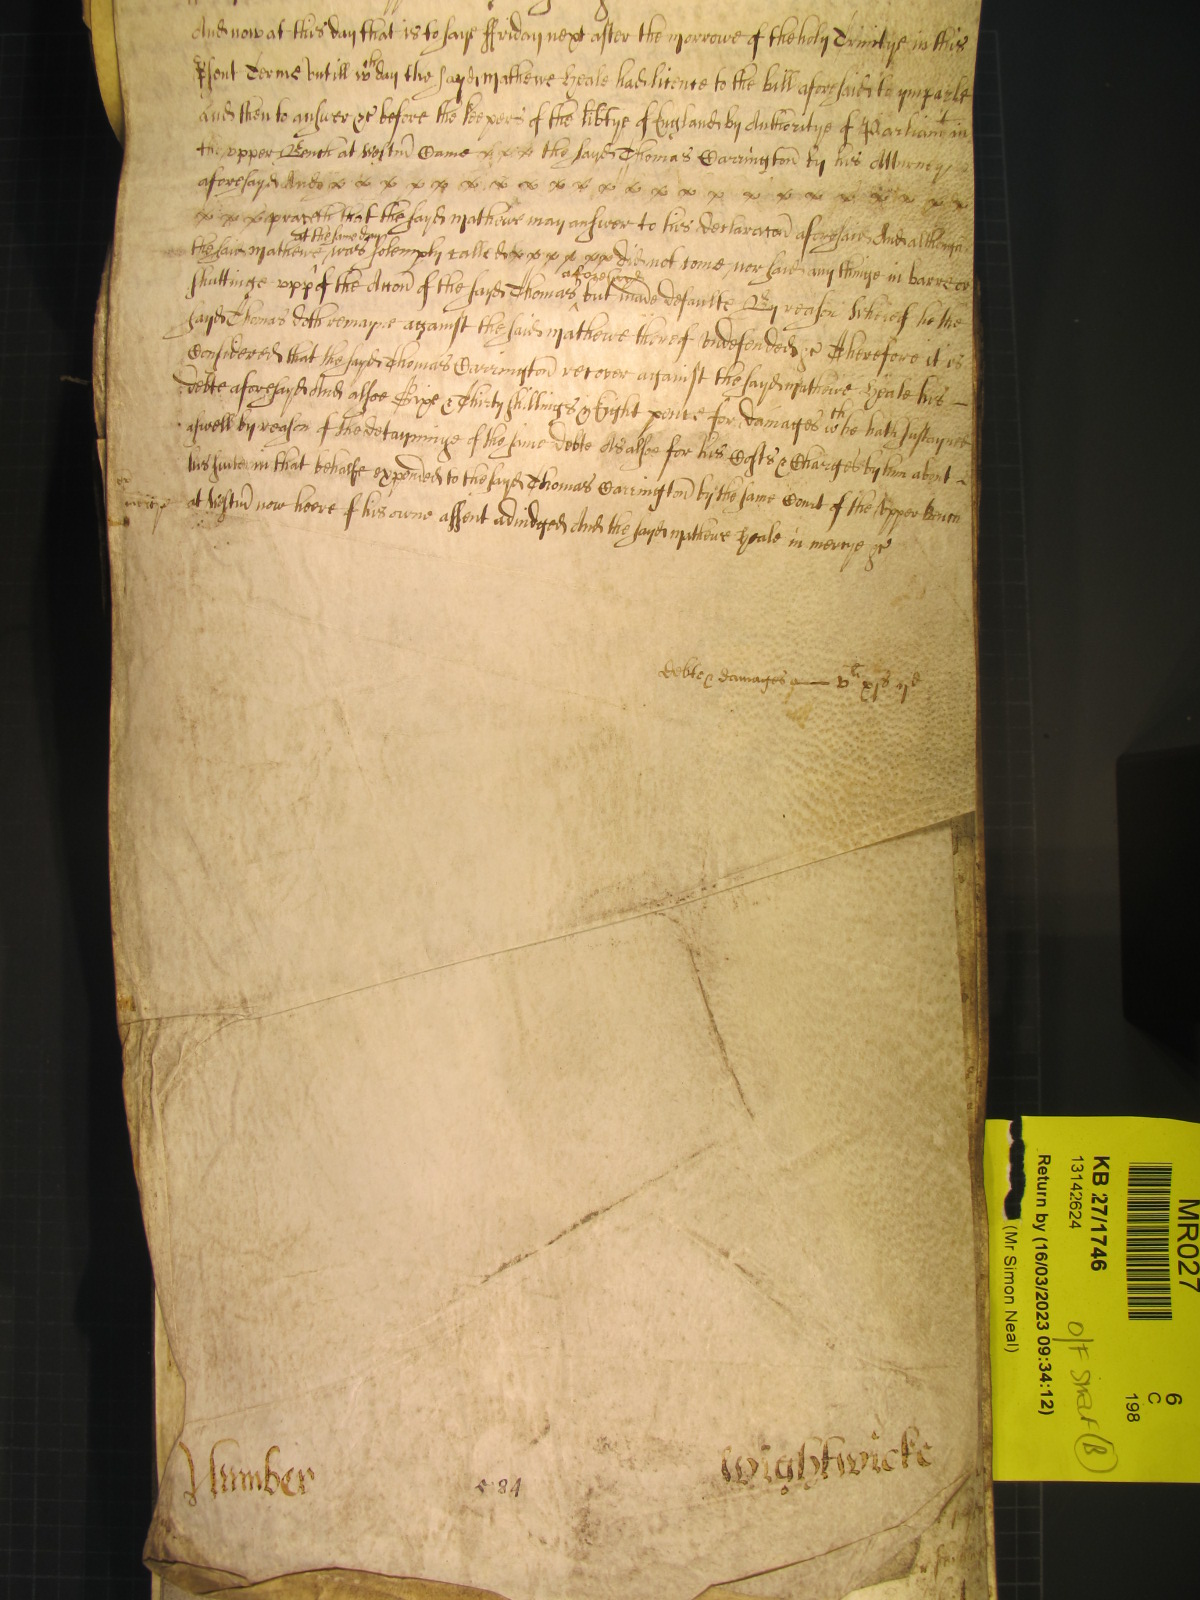 And now at this day that is to saye ffriday next after the morrowe of the holy Trinitye in this
p̱sent Terme untill wch day the sayd mathewe Heale had licence to the bill aforesaid to ymparle
And then to answer &c before the keepers of the libtye of England by Authoritye of Parliamt in
the upper Bench at Westm̄ Came x x x the sayd Thomas Carrington by his Atturney
aforesayd And x x x x x x x x x x x x x x x x x x x x
x x x prayeth that the sayd mathewe may answer to his declaracon aforesaid And although
the said mathewe at the same day was solemply called x x x x x x did not come nor said any thinge in barre or
shuttinge upp of the Accon of the sayd Thomas aforesaid but made defaulte By reason whereof he the
sayd Thomas doth remayne against the said mathewe thereof undefended &c Therefore it is
Considered that the sayd Thomas Carrington recover against the sayd mathewe Heale his
debte aforesayd And alsoe Thirty shillings & Eight pence for damages wch he hath sustayned
aswell by reason of the detayninge of the same debte As alsoe for his Costs & Charges by him about
his suite in that behalfe expended to the sayd Thomas Carrington by the same Court of the Upper Bench
at Westm̄ now heere of his owne assent adiudged And the sayd mathewe Heale in mercye &c
debte & damages
Number
584
Wightwicke
MR027
6
C
198
KB 27/1746
13142624
Return by (16/03/2023 09:34:12)
(Mr Simon Neal)
O/F
B